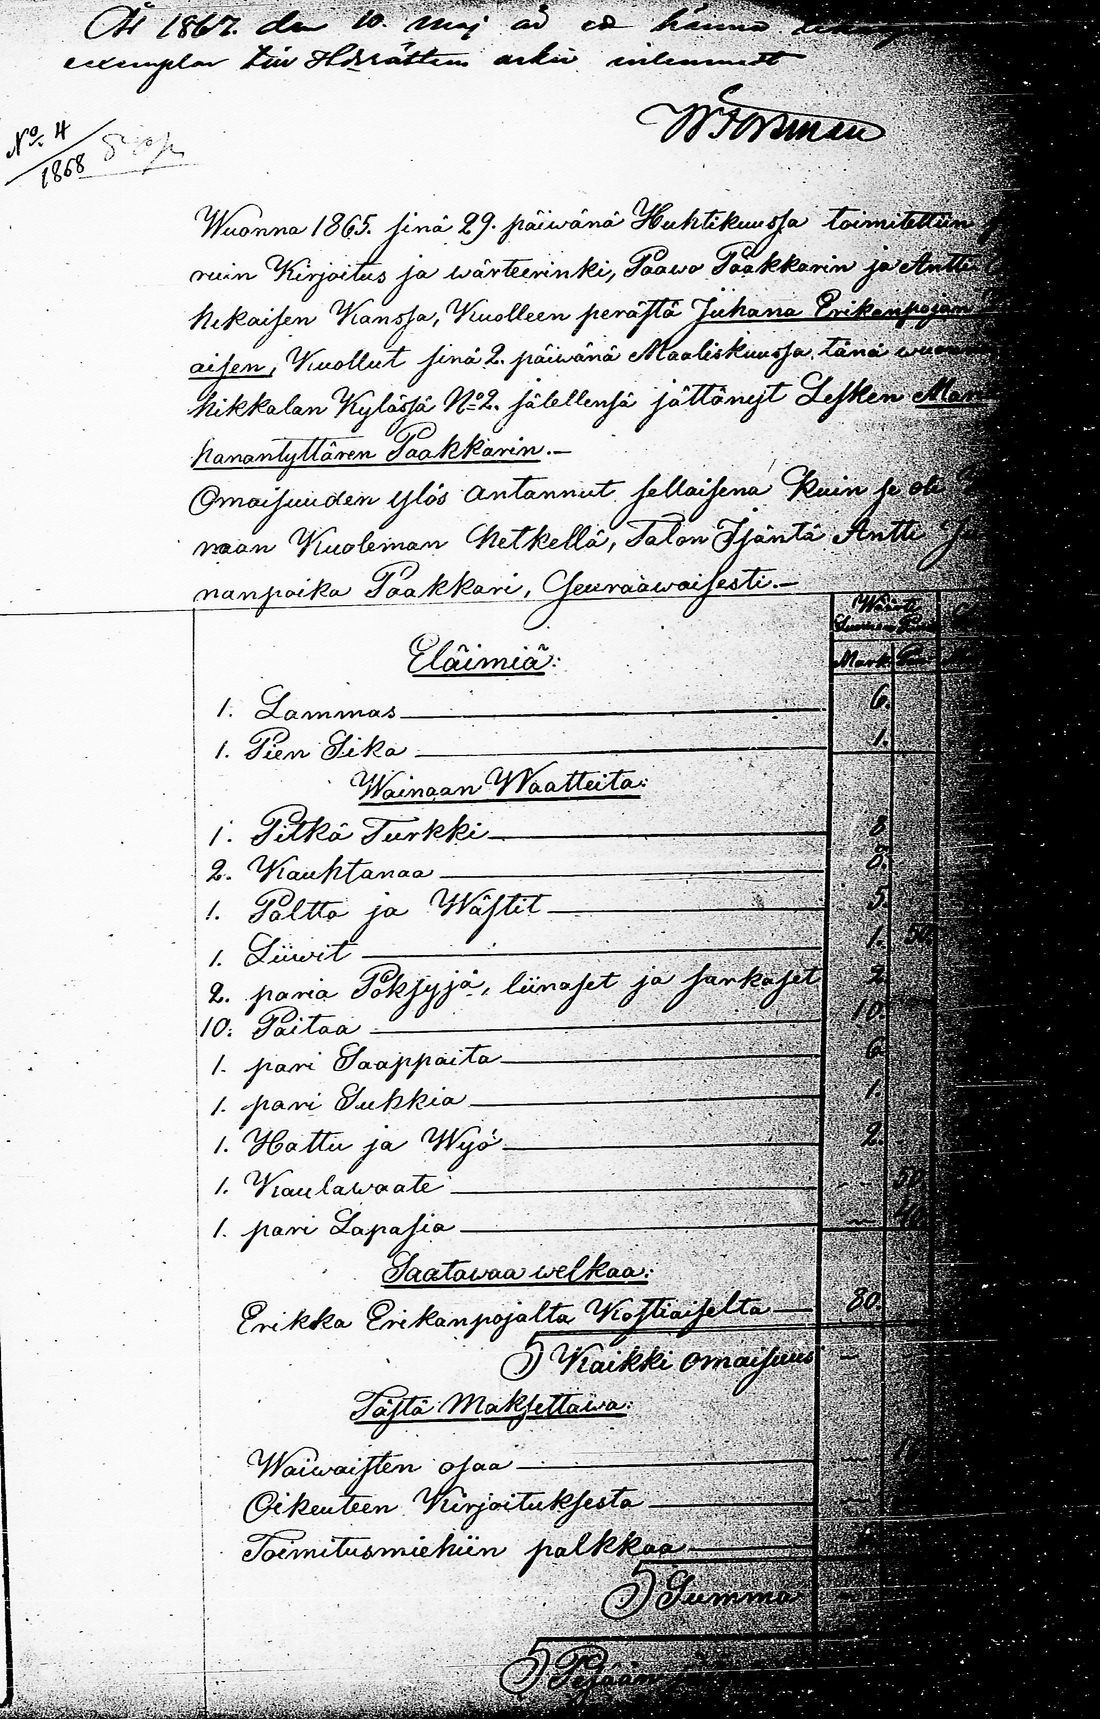 År 1867. den 10. Maj är ett hänna
exemplar till Häradsrättens arkiv inlemnadt
W Forsman
No. 4
1868
Wuonna 1865. sinä 29. päiwänä Huhtikuussa toimitettiin
ruin Kirjoitus ja wärteerinki, Paawo Paakkarin ja Antti
hikaisen Kanssa, Kuolleen perästä Juhana Erikanpojan
aisen, Kuollut sinä 2. päiwänä Maaliskuussa tänä wuonna
hikkalan Kylässä No 2. jälellensä jättänyt Lesken
hanantyttären Paakkarin.—
Omaisuuden ylös antannut sellaisena kuin se oli
naan Kuoleman hetkellä, Talon Isäntä Antti
nanpoika Paakkari, Seuraawaisesti.—
Mark.
Eläimiä:
1. Lammas 6.
1. Pien Sika 1.
Wainaan Waatteita:
1. Pitkä Turkki 8
2. Kauhtanaa 8.
1. Paltto ja Wästit 5.
1. Liiwit 1. 50.
2. paria Pöksyjä, liinaset ja sarkaset 2
10. Paitaa 10.
1. pari Saappaita 6
1. pari Sukkia 1.
1. Hattu ja Wyö 2.
1. Kaulawaate 50.
1. pari Lapasia
Saatawaa welkaa:
Erikka Erikanpojalta Kostiaiselta 80
Kaikki omaisuus
Tästä Maksettawa:
Waiwaisten osaa
Oikeuteen Kirjoituksesta
Toimitusmiehiin palkkaa
Summa